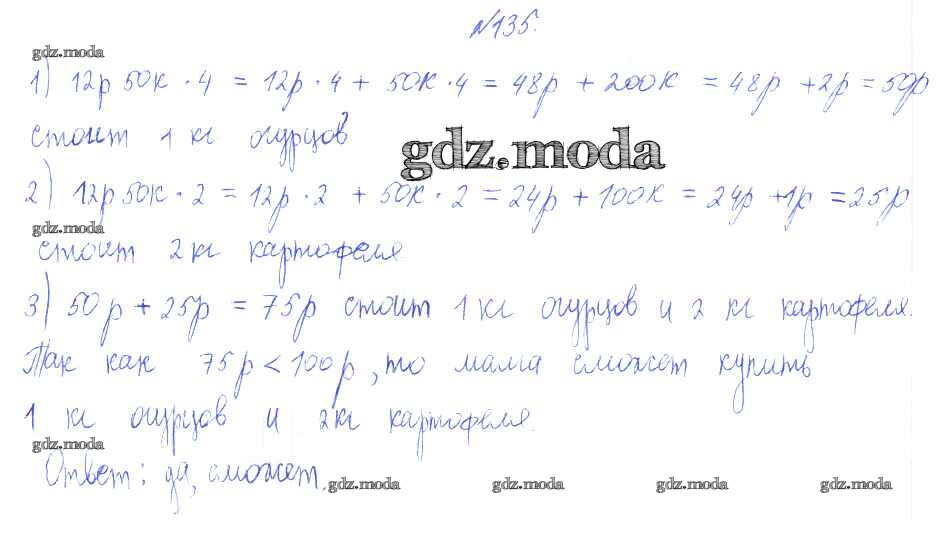 №135.
gdz.moda
1) 12р 50к · 4 = 12р · 4 + 50к · 4 = 48р + 200к = 48р + 2р = 50р
стоит 1 кг огурцов
gdz.moda
2) 12р 50к · 2 = 12р · 2 + 50к · 2 = 24р + 100к = 24р + 1р = 25р
gdz.moda
стоит 2 кг картофеля
3) 50р + 25р = 75р стоит 1 кг огурцов и 2 кг картофеля.
Так как 75р < 100р, то мама сможет купить
1 кг огурцов и 2кг картофеля.
gdz.moda
Ответ: да, сможет.
gdz.moda gdz.moda gdz.moda gdz.moda